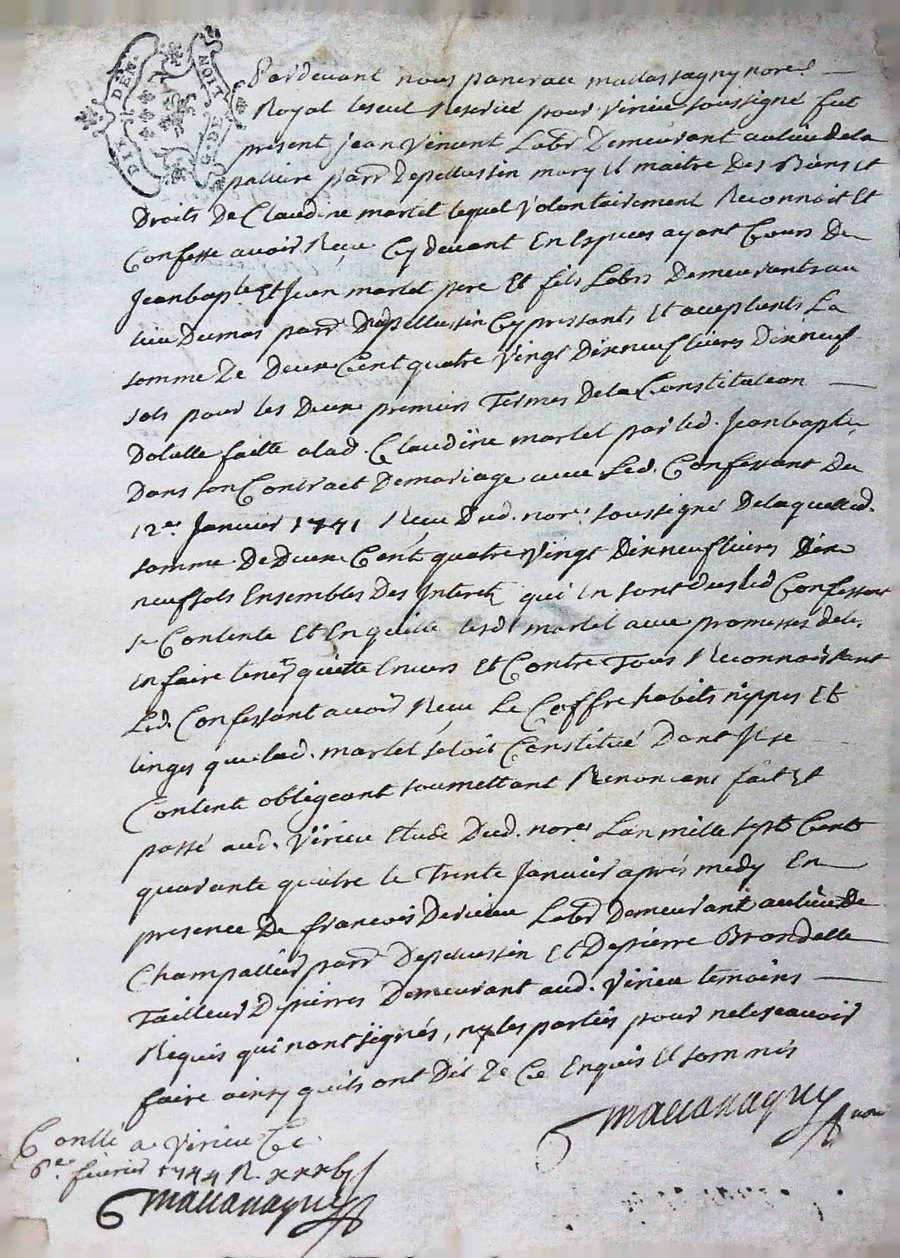 DIX DEN. G. DE LION
Pardevant nous pancrace mallassagny nore.
Royal le seul Reservé pour Virieu soussigné fut
present jean Vincent Labr Demeurant au lieu de la
palliure parr Depellussin mary et maitre Des Biens et
Droits De Claudine martel lequel Volontairement Reconnoit Et
Confesse avoir Reçu Cy devant En Especes ayant Cours De
Jeanbapte. Et Jean martel pere Et fils Labrs Demeurants au
lieu Dumas parr Depellussin Cy pressants Et aceptants La
somme De Deux Cent quatre Vingt Dixneuf livres Dixneuf
sols pour les Deux premiers Termes De la Constitution
Dotalle faitte a lad. Claudine martel par led. Jeanbapte.
Dans son Contract De mariage avec Led. Confessant Du
12er. Janvier 1741 Reçu Dud. nore. soussigné De laquelle d.
somme De Deux Cent quatre Vingt Dixneuf livres Dix
neuf sols Ensembles Des Interets qui En sont Dus led Confessant
se Contente Et En quitte lesd. martel avec promesses de les
En faire tenir quitte Envers Et Contre Tous Reconnaissant
Led. Confessant avoir Reçu Le Coffre habits nippes Et
linges que lad. martel setoit Constitué Dont Il se
Contente obligeant soumettant Renoncant fait Et
passé aud. Virieu Etude Dud. nore. Lan mille sept Cent
quarante quatre le Trente Janvier aprés midy En
presence De francois Dervieu Labr Demeurant au lieu De
Champallier parr Depellussin Et De pierre Brondelle
Tailleur De pierres Demeurant aud. Virieu temoins
Requis qui nont signés, ny les parties pour ne le sçavoir
faire ainsy quils ont Dit De Ce Enquis Et sommés
Conllé a Virieu Ce
6er fevrier 1744 R.